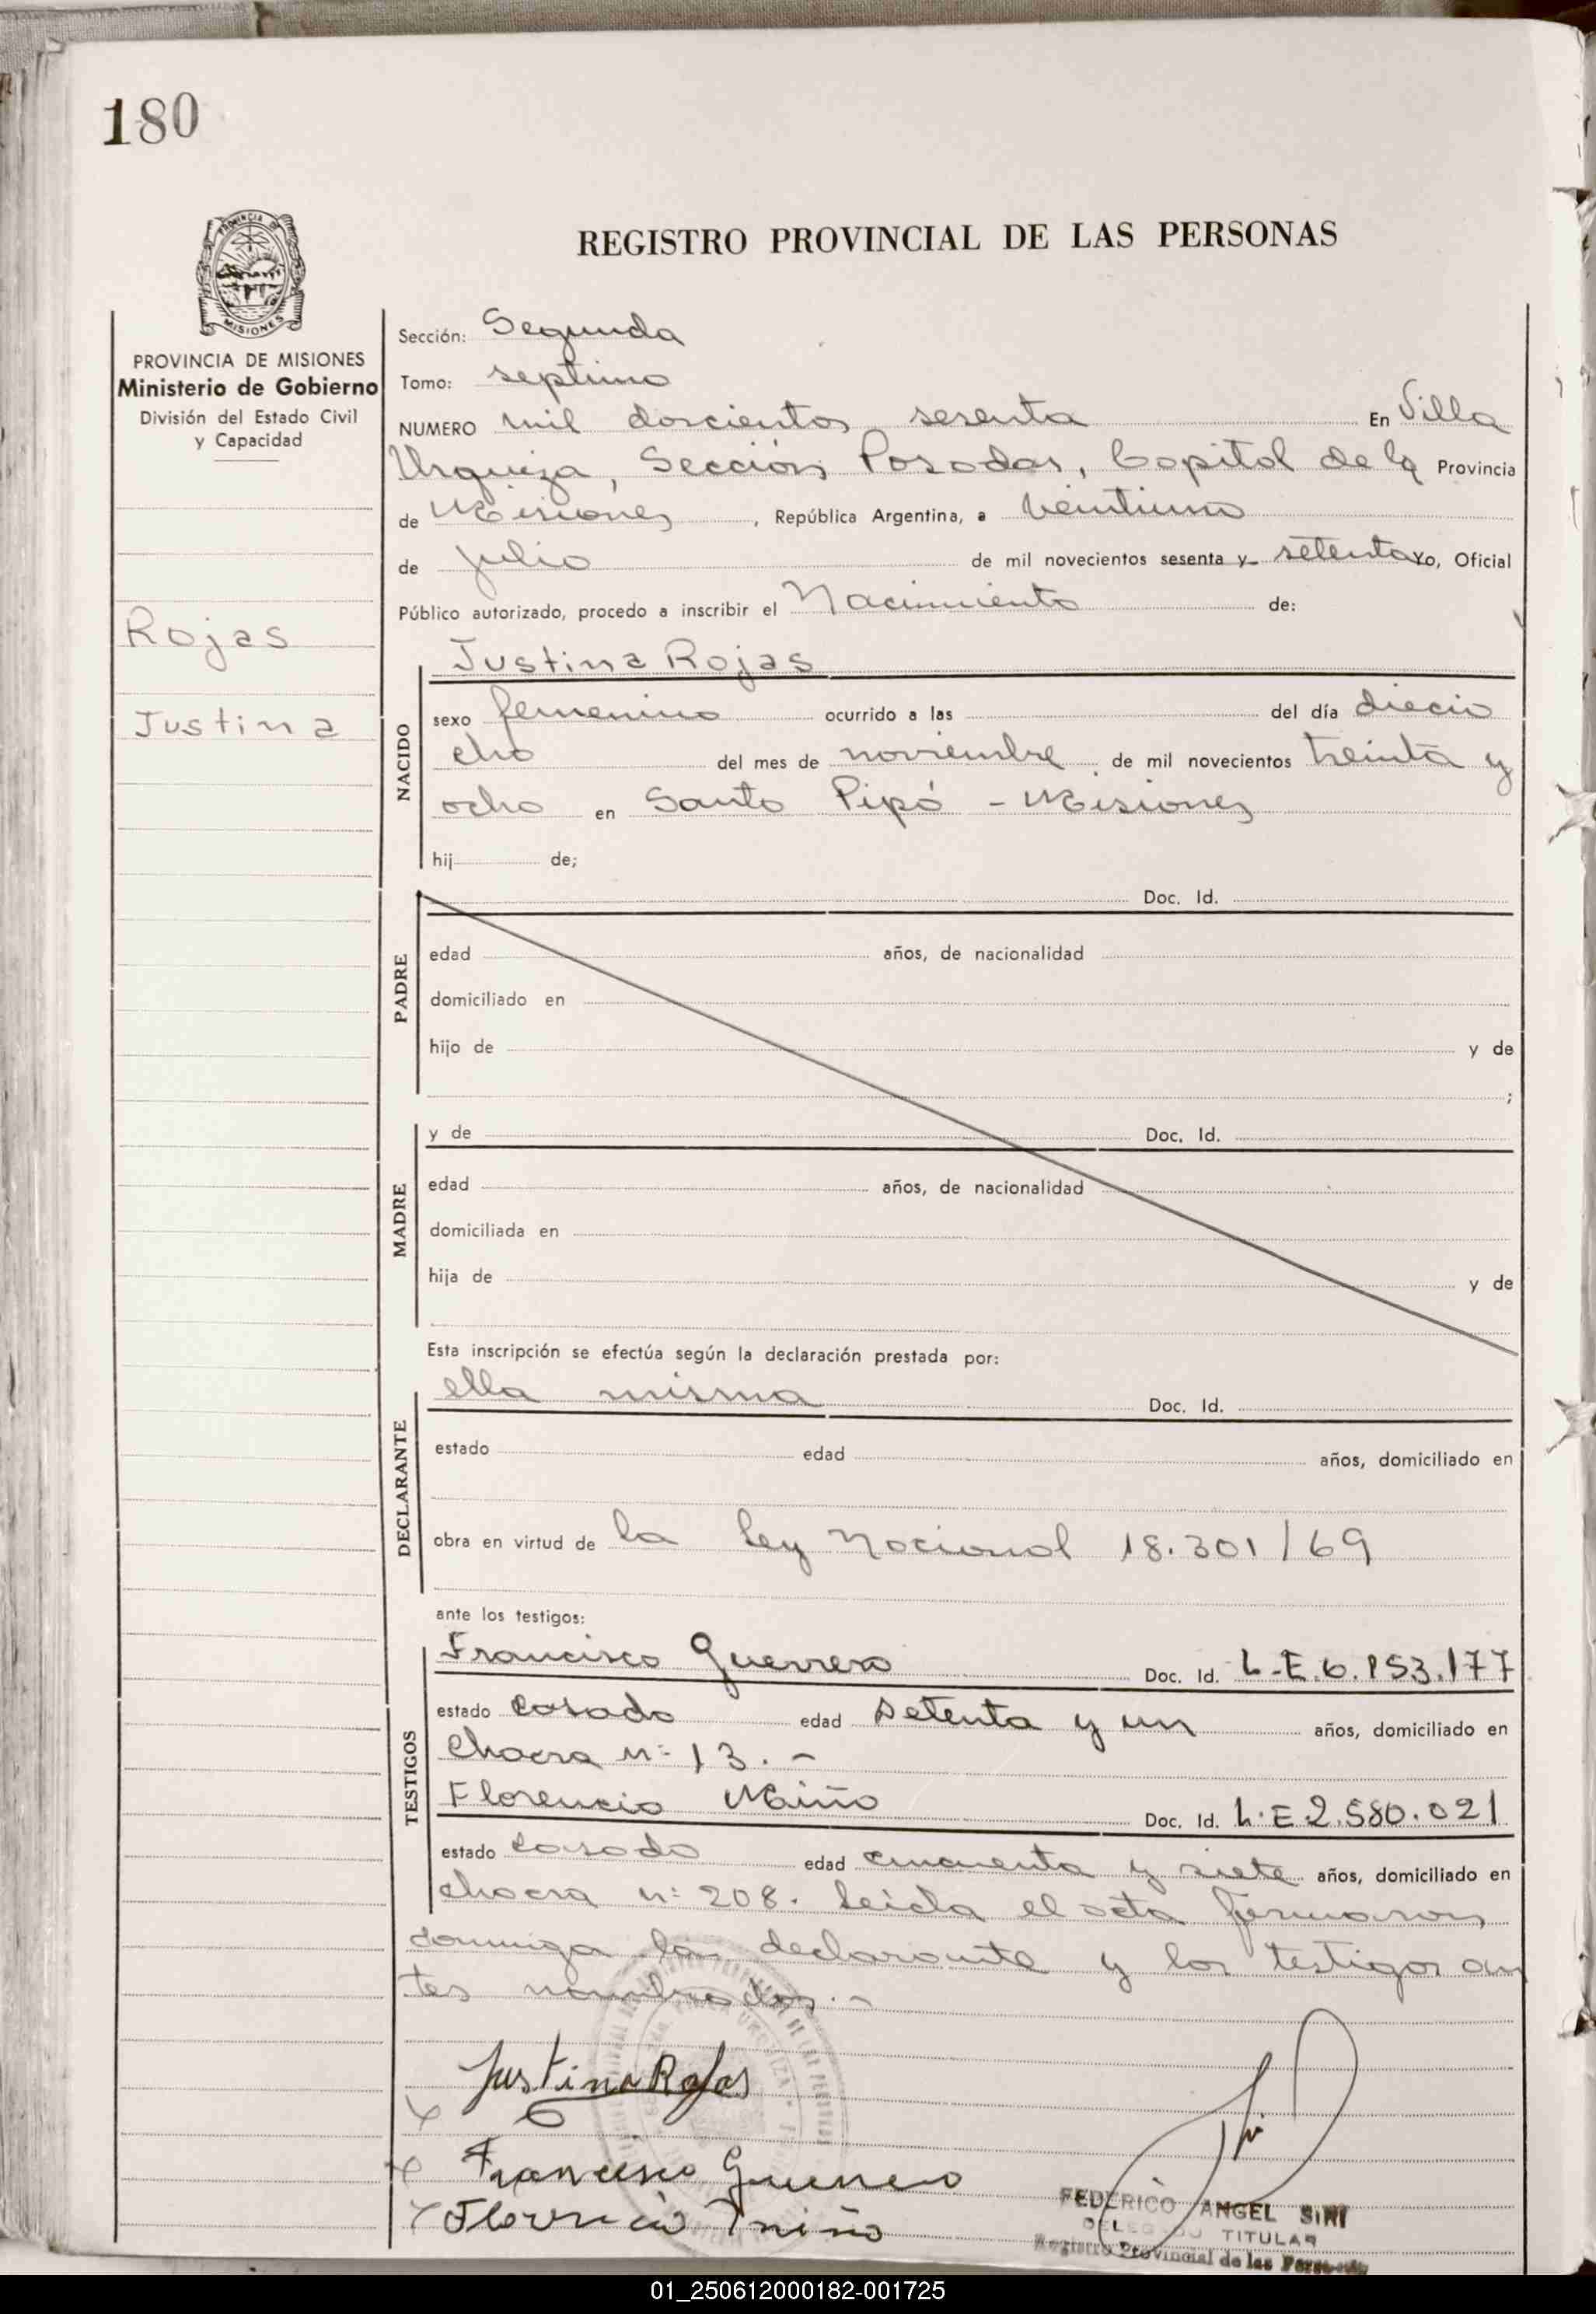 180
REGISTRO PROVINCIAL DE LAS PERSONAS
MISIONES
PROVINCIA DE MISIONES
Ministerio de Gobierno
División del Estado Civil
y Capacidad
Rojas
Justina
Sección: Segunda
Tomo: septimo
NUMERO mil doscientos sesenta En Villa
Urquiza, Sección Posadas, Capital de la Provincia
de Misiones, República Argentina, a veintiuno
de julio de mil novecientos sesenta y setenta yo, Oficial
Público autorizado, procedo a inscribir el Nacimiento de:
NACIDO
Justina Rojas
sexo femenino ocurrido a las del día diecio
cho del mes de noviembre de mil novecientos treinta y
ocho en Santo Pipó - Misiones
hij de;
PADRE
Doc. Id.
edad años, de nacionalidad
domiciliado en
hijo de y de
;
MADRE
y de Doc. Id.
edad años, de nacionalidad
domiciliada en
hija de y de
Esta inscripción se efectúa según la declaración prestada por:
DECLARANTE
ella misma Doc. Id.
estado edad años, domiciliado en
obra en virtud de la Ley Nacional 18.301/69
ante los testigos:
TESTIGOS
Francisco Guerrero Doc. Id. L.E.6.153.177
estado casado edad setenta y un años, domiciliado en
chacra nº 13.-
Florencio Miño Doc. Id. L.E 2.580.021
estado casado edad cincuenta y siete años, domiciliado en
chacra nº 208. Leida el acta firmaron
conmigo la declarante y los testigos an
tes nombrados.-
Justina Rojas
Francisco Guerrero
Florencio Miño
FEDERICO ANGEL SINI
DELEGADO TITULAR
Registro Provincial de las Personas
01_250612000182-001725